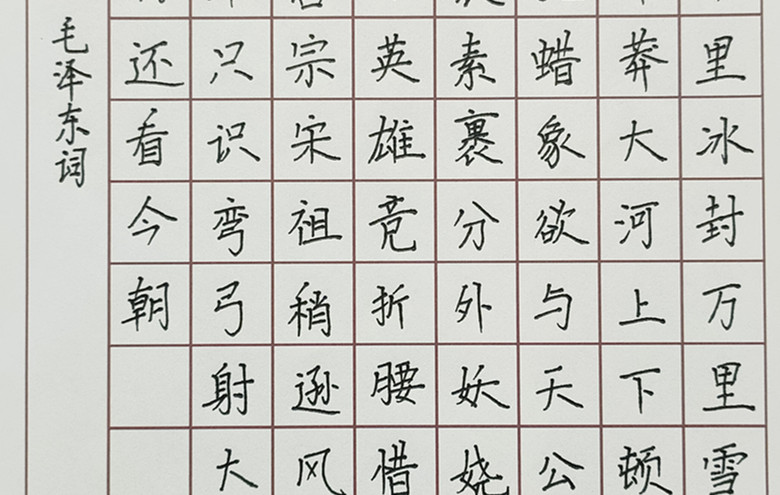 里冰封万里雪
莽大河上下顿
蜡象欲与天公
素裹分外妖娆
英雄竞折腰惜
宗宋祖稍逊风
只识弯弓射大
还看今朝
毛泽东词